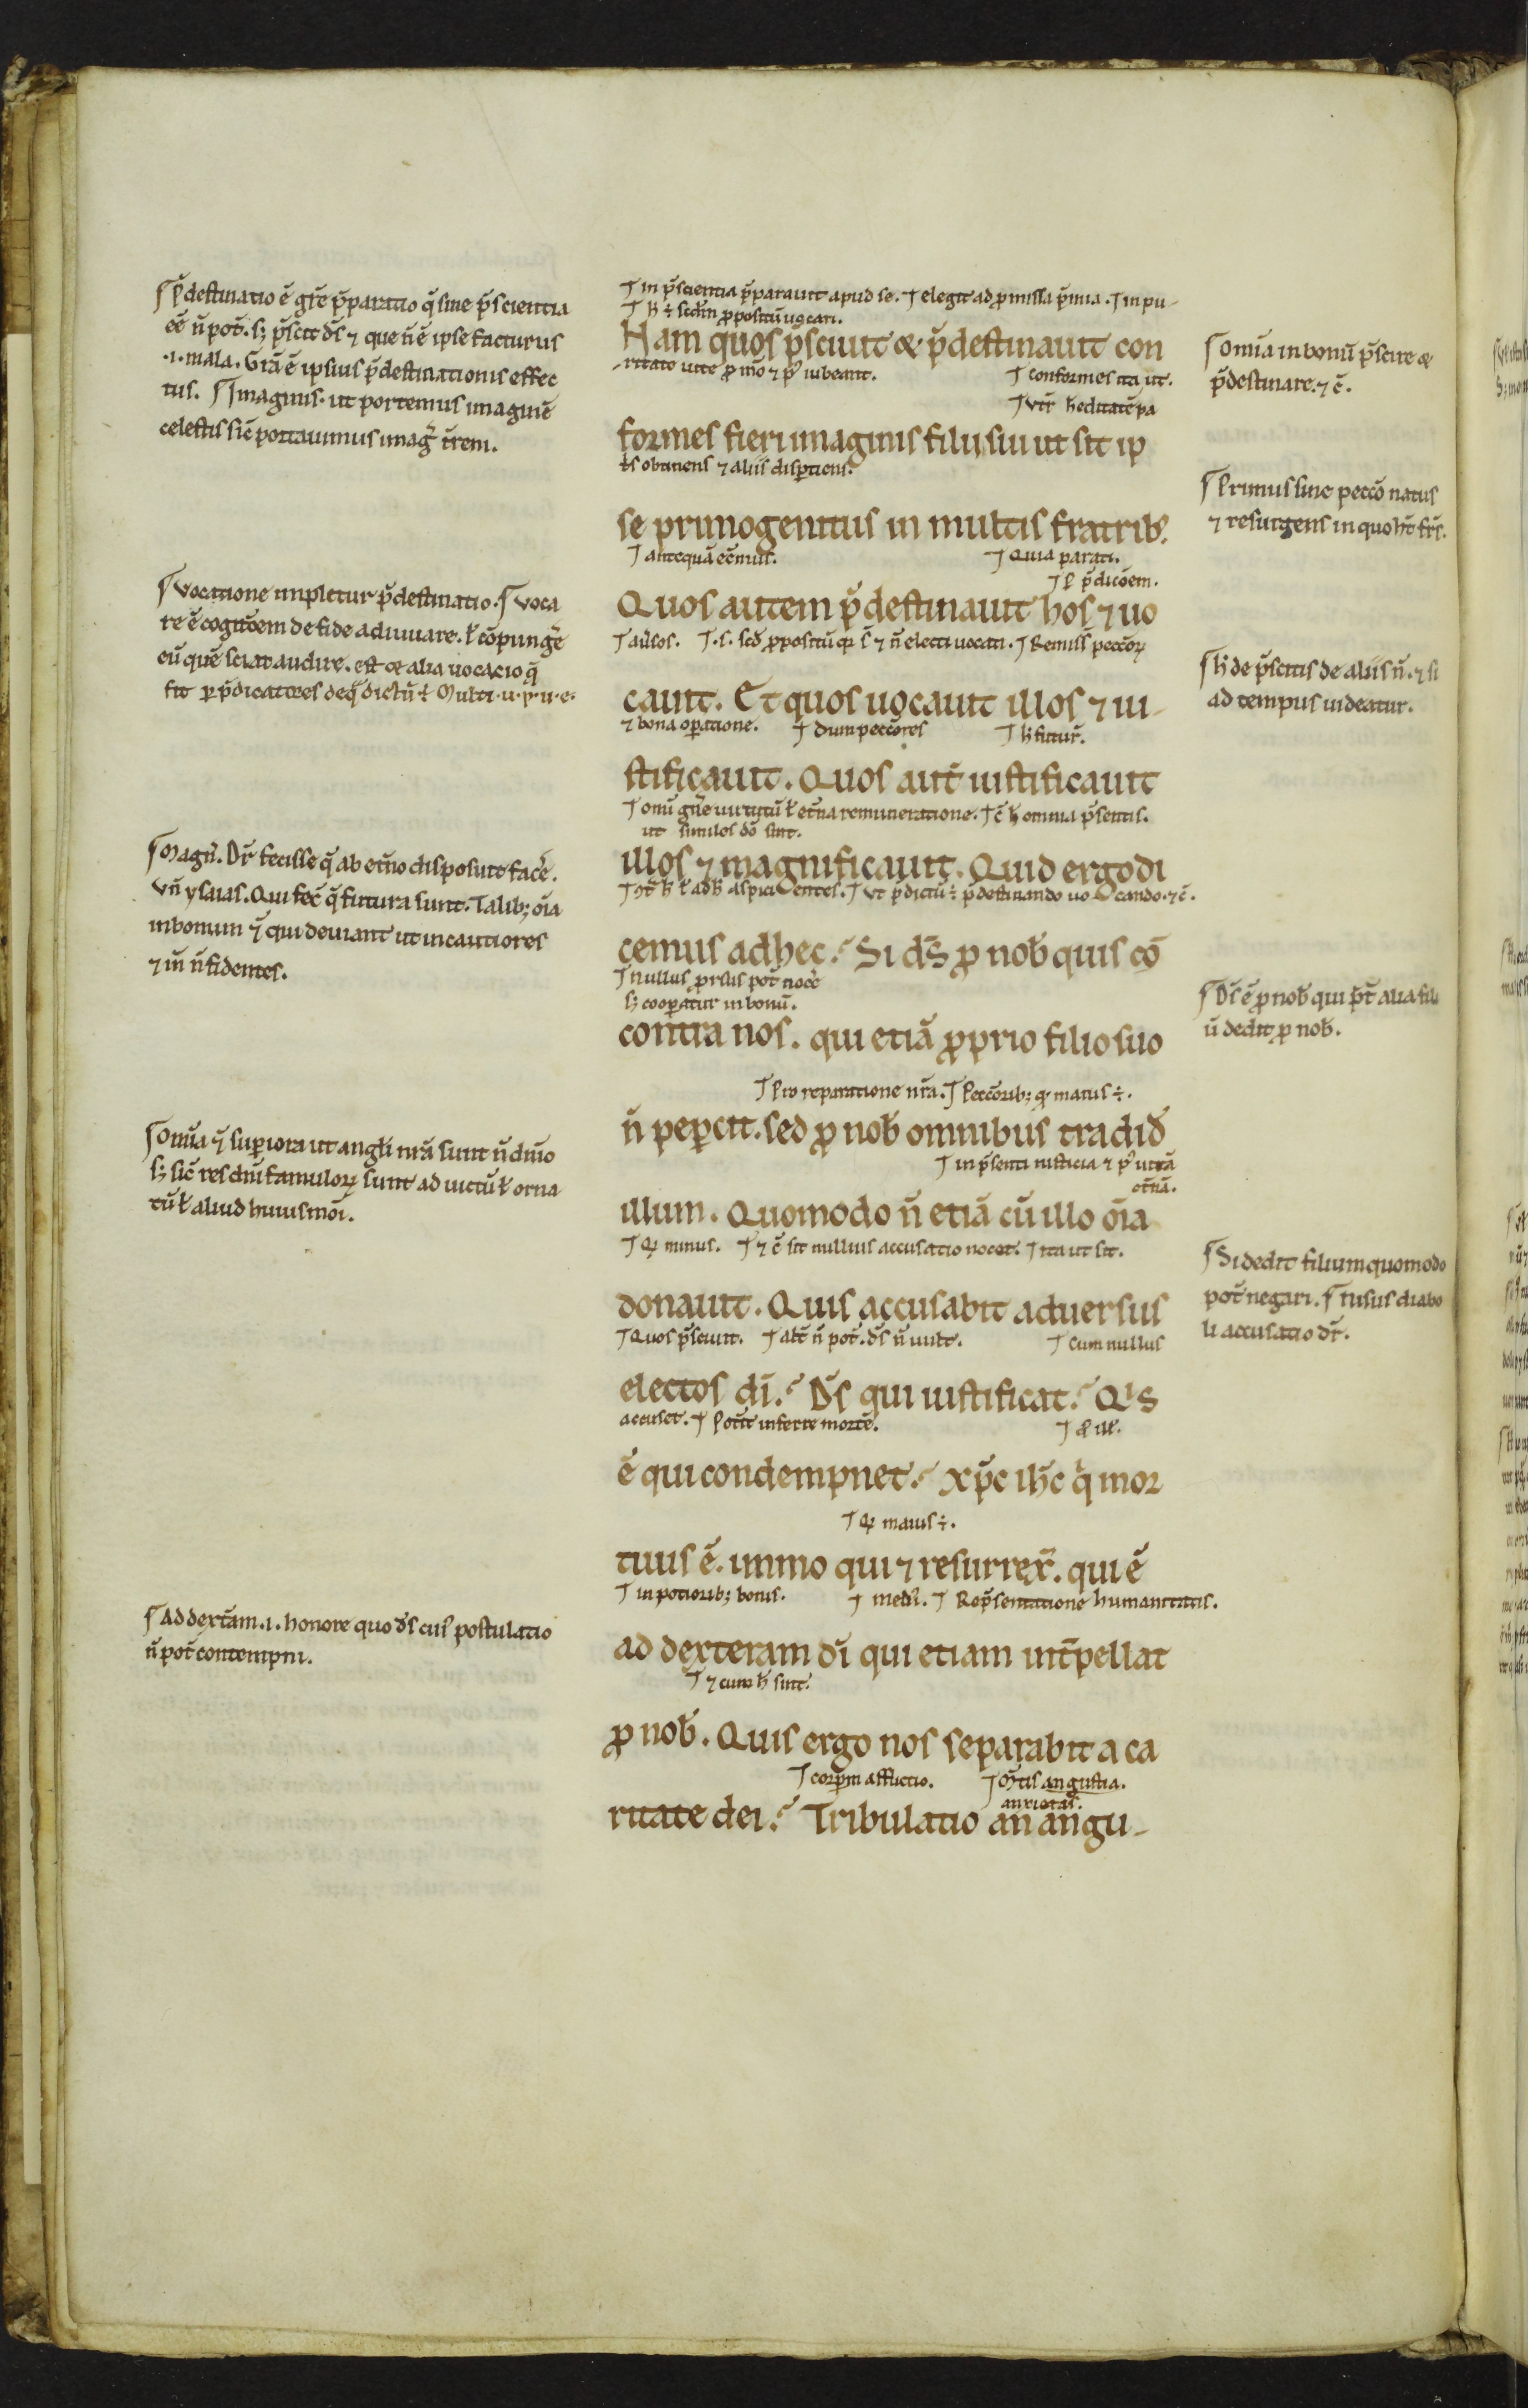 ꝑ̃destinatio ẽ gr̃e p̃paratio q̃ sine p̃scientia
eẽ ñ pot̃. sꝫ p̃scit ds̃ ⁊ que ñ ẽ ipse facturus
.i. mala. Gr̃a ẽ ipsius p̃destinationis effec
tus. Imaginis. ut portemus imaginẽ
celestis sic̃ portauimus imag̃ t̃rem.
Vocatione impletur p̃destinatio. Voca
re ẽ cogitc̃oem de fide adiuuare. ł cõpung̃e
eũ quẽ sciat audire. est & alia uocacio q̃
fit ꝑ p̃dicatores de q̃ dictũ ÷ Multi .u. p. u. e.
Magñ. Dr̃ fecisse q̃ ab et̃no disposuit fac̃e.
Vñ ysaias. Qui fec̃ q̃ futura sunt. Talibꝫ oĩa
in bonum ⁊̃ qui deuiant ut incautiores
⁊ in ñ fidentes.
Om̃ia ⁊̃ superiora ut angł̃i nr̃a sunt ñ dñio
sꝫ sic̃ res dñi famuloꝝ sunt ad uictũ ł orna
tũ ł aliud huiusmõi.
Ad dext̃am .i. honore quo ds̃ cui postulatio
ñ pot̃ contempni.
In p̃scientia p̃parauit apud se. elegit ad promissa p̃mia. In pu-
h̃ ÷ scdm̃ propositũ uocari.
Nam quos p̃sciuit & p̃destinauit con
-ritate uite pro mõ ⁊ p⁹ iubeant. conformes ita ut.
Vtr̃ h̃editatẽ pa
formes fieri imaginis filii sui ut sit ip
tris obtinens ⁊ aliis disꝑtiens.
se primogenitus in multis fratribꝫ.
antequã eẽmus. Quia parati.
ꝑ p̃dicõem.
Quos autem p̃destinauit hos ⁊ uo
aũsos. .s. scd̃ propositũ qꝛ s̃ ⁊ ñ electi uocati. Remiss̃ peccõꝝ
cauit. Et quos uocauit illos ⁊ iu-
⁊ bona oꝑatione. dum peccõres h̃ futur̃.
stificauit. Quos aut̃ iustificauit
omĩ gñe uirtutũ ł et̃na remuneratione. c̃ h̃ omnia p̃sentis.
ut similes dõ sint.
illos ⁊ magnificauit. Quid ergo di
ł ad h̃ aspicientes. Vt p̃dictũ ÷ p̃destinando uocando. ⁊c̃.
cemus ad hec. Si ds̃ pro nob̃ quis cõ
Nullus prorsus pot̃ noc̃e
sꝫ cooꝑatur in bonũ.
contra nos. qui etiã proprio filio suo
Pro reparatione nr̃a. Peccõribꝫ qꝛ maius ÷.
ñ peꝑcit. sed pro nob̃ omnibus tradid̃
in p̃senti iusticia ⁊ p⁹ uitã
et̃nã.
illum. Quomodo ñ etiã cũ illo oĩa
qꝛ minus. ⁊ c̃ sit nullius accusatio nocet. ita ut sit.
donauit. Quis accusabit aduersus
Quos p̃sciuit. alt̃ ñ pot̃. ds̃ ñ uult. Cum nullus
electos dĩ. Ds̃ qui iustificat. Qⁱs
accuset. Pot̃it inferre mortẽ. pro ill̃.
ẽ qui condempnet. xp̃c ih̃c qⁱ mor
qꝛ maius ÷.
tuus ẽ. immo qui ⁊ resurrex̃. qui ẽ
in potioribꝫ bonis. med. Rep̃sentatione humanitatis.
ad dexteram dĩ qui etiam int̃pellat
⁊ cum h̃ sint.
pro nob̃. Quis ergo nos separabit a ca
corꝑm afflictio. Mtĩs angustia.
anxietas.
ritate dei. Tribulatio an angu-
Om̃ia in bonũ p̃scire &
p̃destinare. ⁊c̃.
Primus sine peccõ natus
⁊ resurgens in quo ht̃ fr̃s.
h̃ de p̃scitis de aliis ñ. ⁊ si
ad tempus uideatur.
Ds̃ ẽ pro nob̃ qui p̃t̃ alia fili
ũ dedit pro nob̃.
Si dedit filium quomodo
pot̃ negari. diabo
li accusatio dr̃.